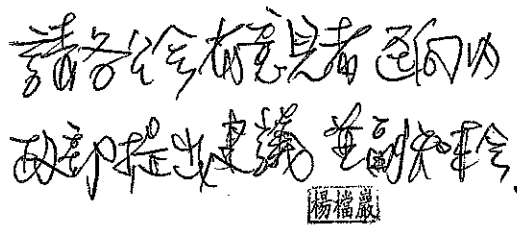 請各公會有意見者逕向內
政部提出建議並副知本會.
楊檔嚴